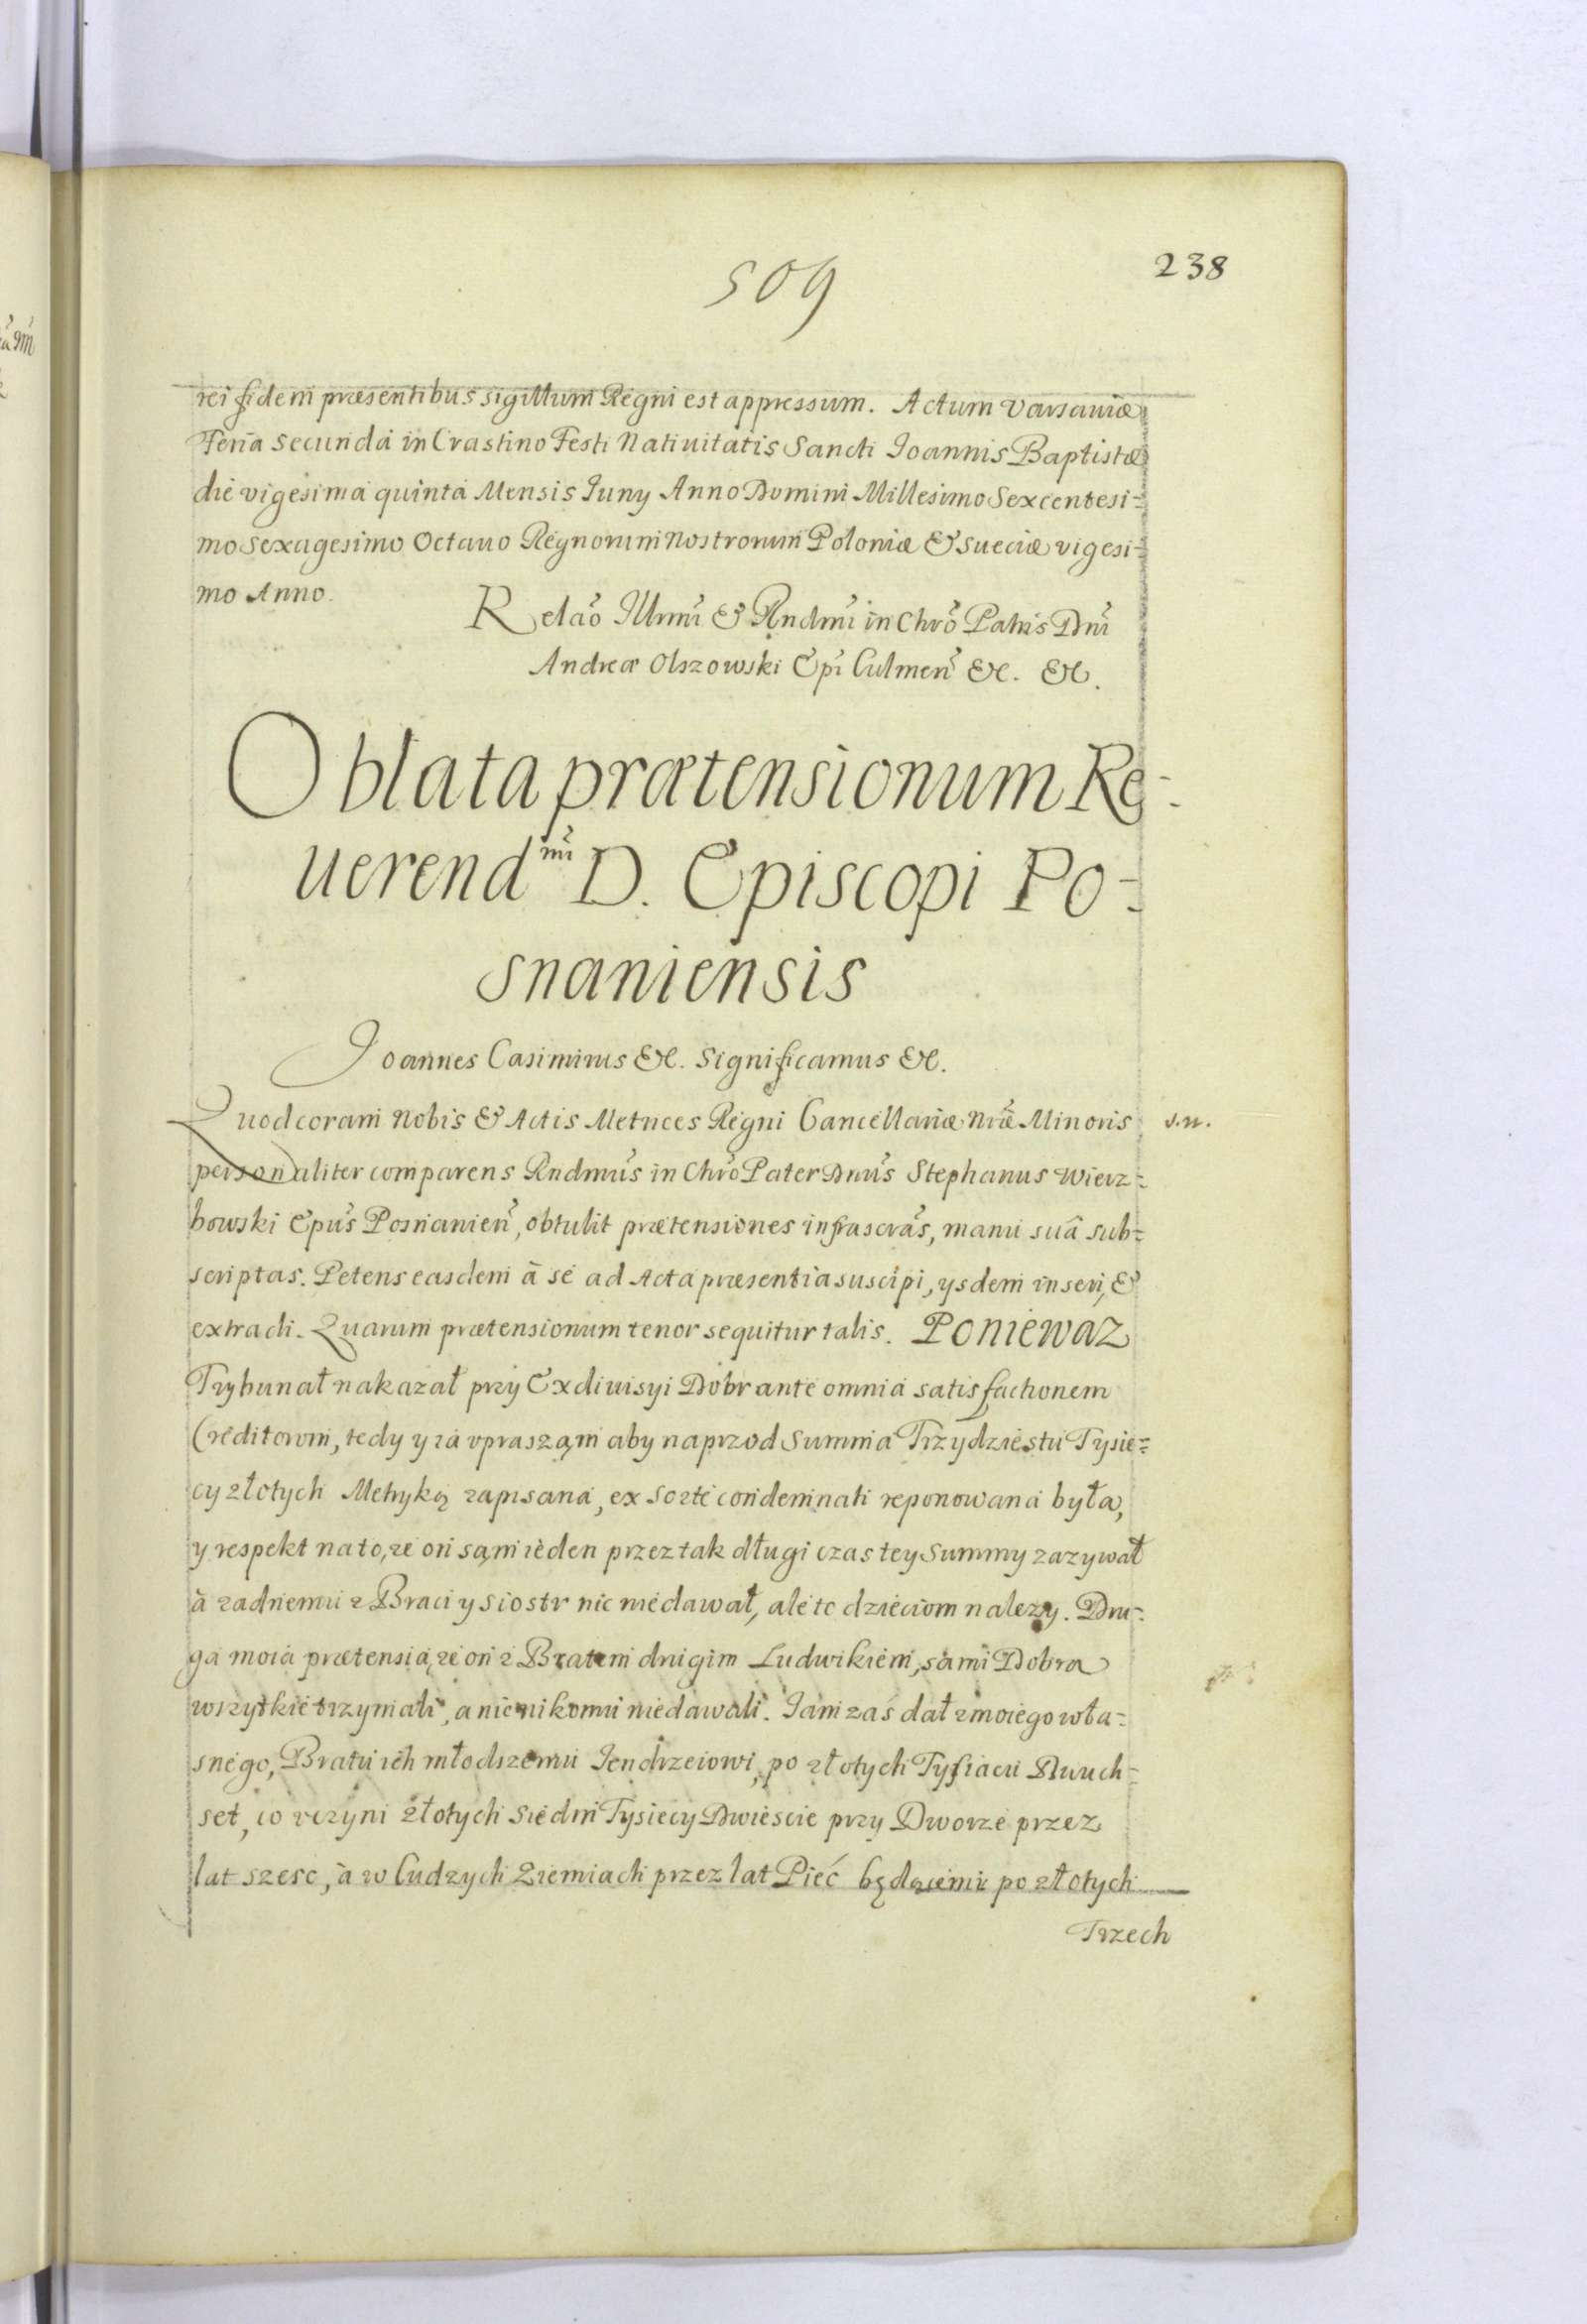 509
238
rei fidem præsentibus sigillum Regni est appressum. Actum Varsaviæ
Feria secunda in Crastino Festi Nativitatis Sancti Joannis Baptistæ
die vigesima quinta Mensis Juny Anno Domini Millesimo Sexcentesi=
mo sexagesimo Octavo Regnorum nostrorum Poloniæ & Sueciæ vigesi=
mo Anno.
Relaõ Illrmi & Rndmi in Chrõ Patris Dni
Andreæ Olszowski Epi Culmen &c. &c.
Oblata prætensionum Re-
uerend mi D. Episcopi Po-
snaniensis
Joannes Casimirus &c. Significamus &c.
Quod coram Nobis & Actis Metrices Regni Cancellariæ Nræ Minoris s.n.
personaliter comparens Rndmus in Chrõ Pater Dnus Stephanus Wierz=
bowski Epus Posnanien, obtulit prætensiones infrascras, manu suâ sub=
scriptas. Petens easdem à se ad Acta præsentia suscipi, ysdem inseri, &
extradi. Quarum prætensionum tenor sequitur talis. Poniewaz
Trybunał nakazał przy Exdiuisyi Dobr ante omnia satisfactionem
Creditorom, tedy y ia vpraszam aby naprzod Summa Trzydziestu Tysie=
cy złotych Metryką zapisana, ex sorte condemnati reponowana była,
y respekt na to, ze on sam ieden przez tak długi czas tey Summy zazywał
à zadnemu z Braci y siostr nic niedawał, ale to dzieciom nalezy. Dru-
ga moia prætensia, ze on z Bratem drugim Ludwikiem, sami Dobra
wszytkie trzymali, a nic nikomu niedawali. Iam zaś dał z moiego wła=
snego, Bratu ich młodszemu Jendrzeiowi, po złotych Tysiacu Dwuch=
set, co vczyni złotych Siedm Tysiecy Dwiescie przy Dworze przez
lat szesc, à w Cudzych Ziemiach przez lat Pieć będącemu po złotych
Trzech